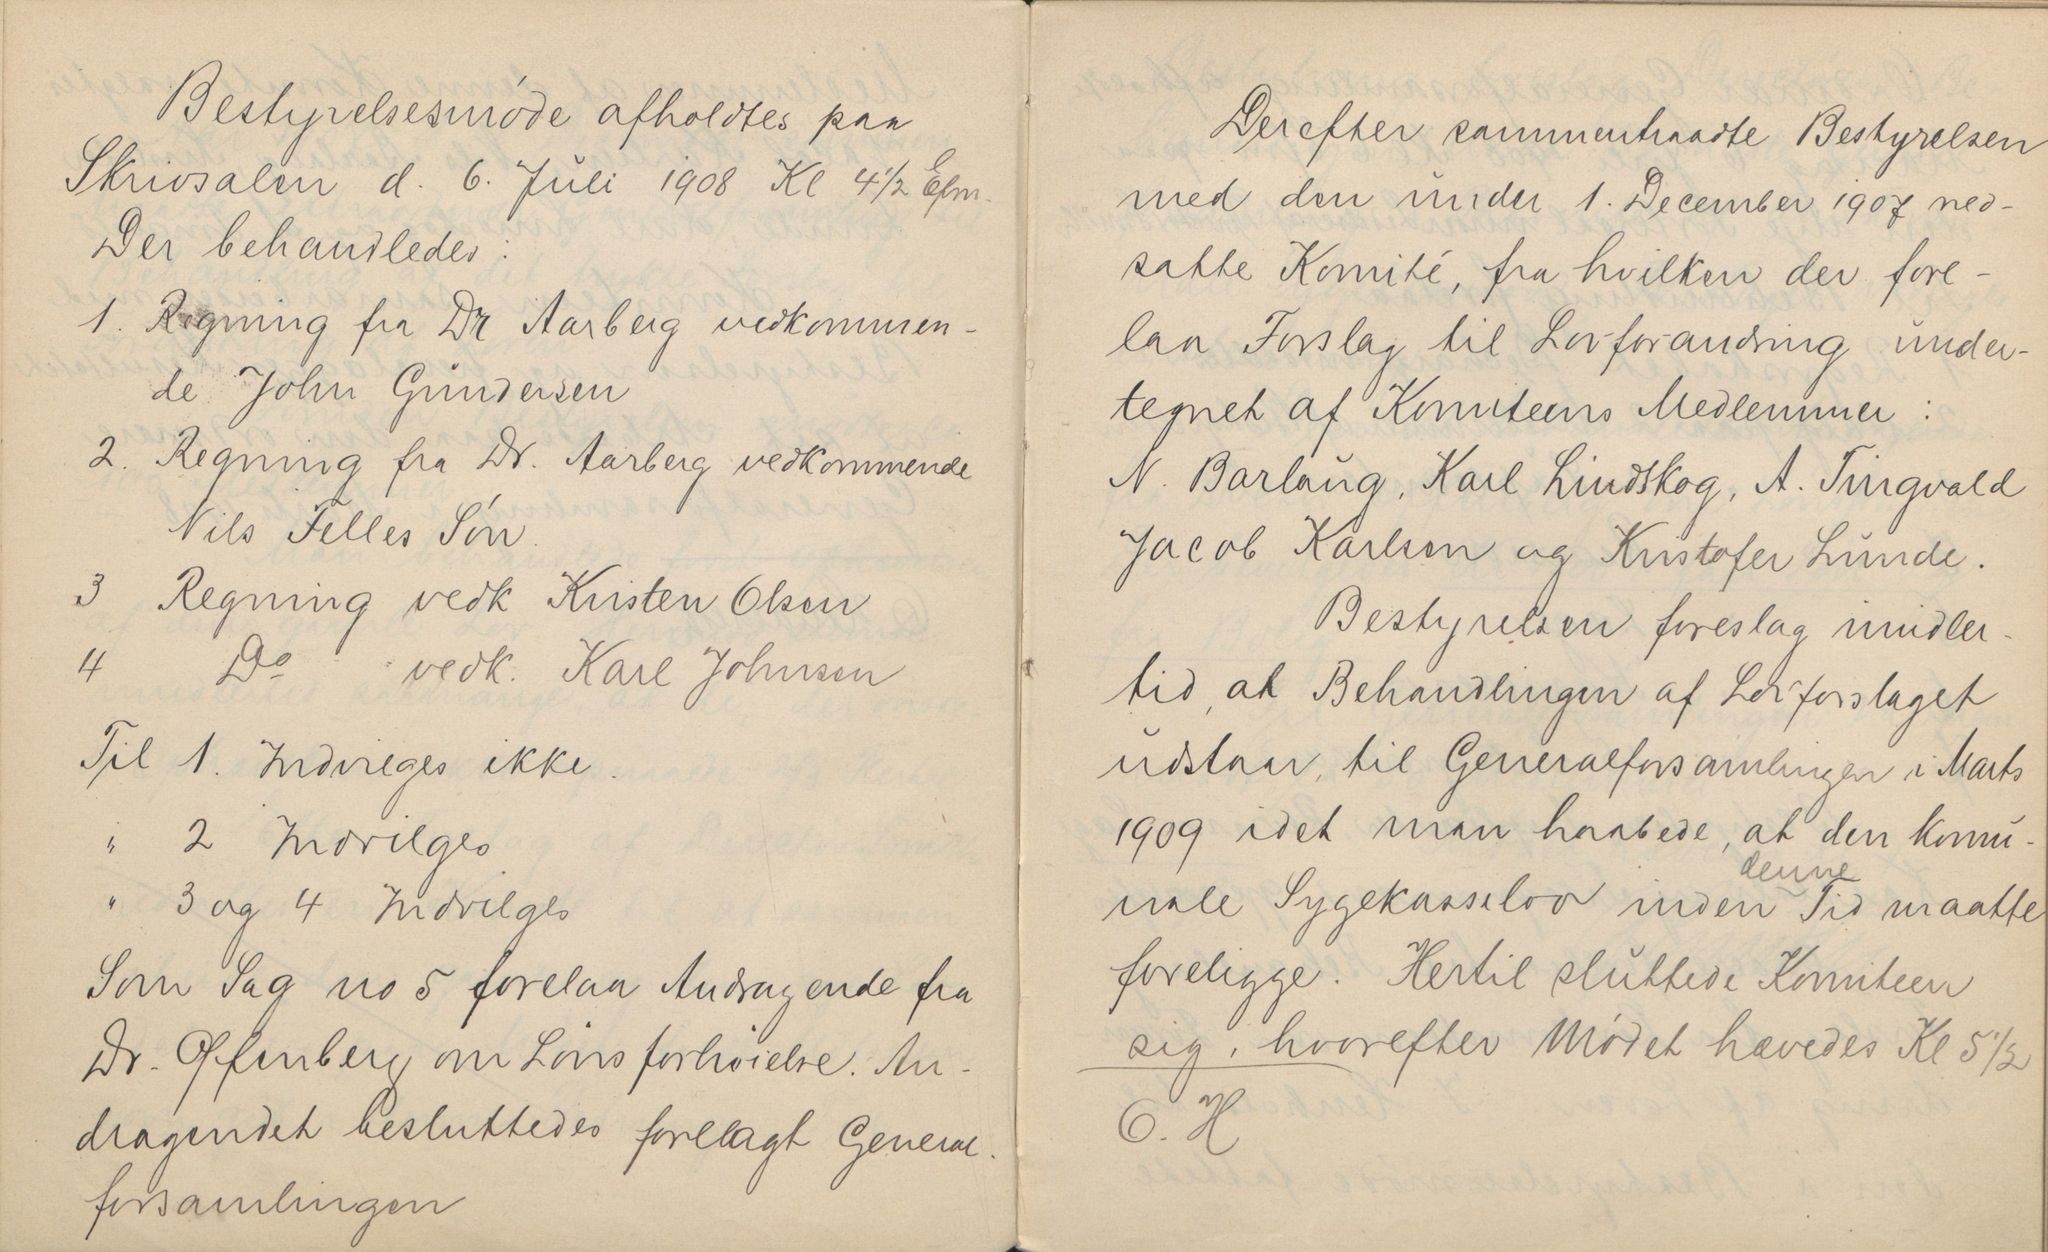 Bestyrelsesmøde afholdtes paa
Skrivsalen d. 6. Juli 1908 Kl 4 1/2 Efm.
Der behandledes:
1. Regning fra Dr Aarberg vedkommen-
de John Gundersen
2. Regning fra Dr. Aarberg vedkommende
Nils Felles Søn.
3 Regning vedk Kristen Olsen
4 Do vedk. Karl Johnsen
Til 1. Indvilges ikke.
" 2 Indvilges
" 3 og 4 Indvilges
Som Sag no 5 forelaa Andragende fra
Dr. Offenberg om Lønsforhøielse. An-
dragendet besluttedes forelagt General-
forsamlingen
Derefter sammentraadte Bestyrelsen
med den under 1. December 1907 ned-
satte Komité, fra hvilken der fore-
laa Forslag til Lovforandring under-
tegnet af Komiteens Medlemmer:
N. Barlaug, Karl Lindskog, A. Tingvald
Jacob Karlsen og Kristofer Lunde.
Bestyrelsen foreslag imidler-
tid, at Behandlingen af Lovforslaget
udstaar, til Generalforsamlingen i Marts
1909 idet man haabede, at den komu-
nale Sygekasselov inden denne Tid maatte
foreligge. Hertil sluttede Komiteen
sig, hvorefter Mødet hævedes Kl 5 1/2
O. H